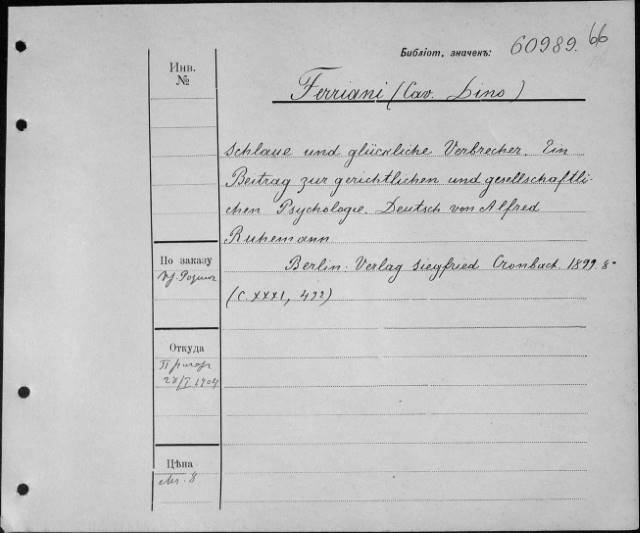 Библіот. значекъ: 60989. 66
Инв.
№
Ferriani (Cav. Lino)
Schlaue und glückliche Verbrecher. Ein
Beitrag zur gerichtlichen und gesellschaftli-
chen Psychologie. Deutsch von Alfred
Ruhemann
Berlin: Verlag Siegfried Cronbach. 1899. 8-
(C. XXXI, 492)
По заказу
Откуда
Цѣна
8